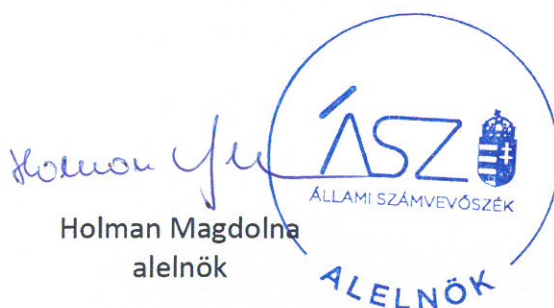 Holman
ÁSZ
ÁLLAMI SZÁMVEVŐSZÉK
Holman Magdolna
alelnök
ALELNÖK